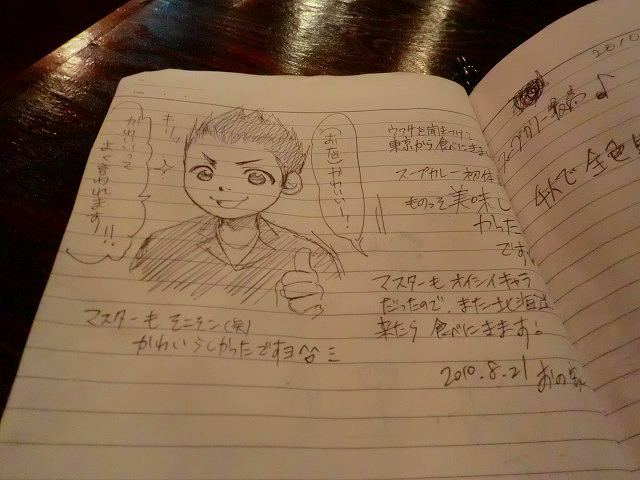 キリッ
かわいいって
よく言われます!!
かわいい!!
ウワサを聞きつけて
東京から食べにきま
スープカレー初体
ものっそ美味し
かった
です
マスターも オイシイキャラ
だったので、また北海道
来たら 食べにきます!
2010.8.21
マスターも
かわいらしかったですヨ^^
2010
スープカレー最高♪